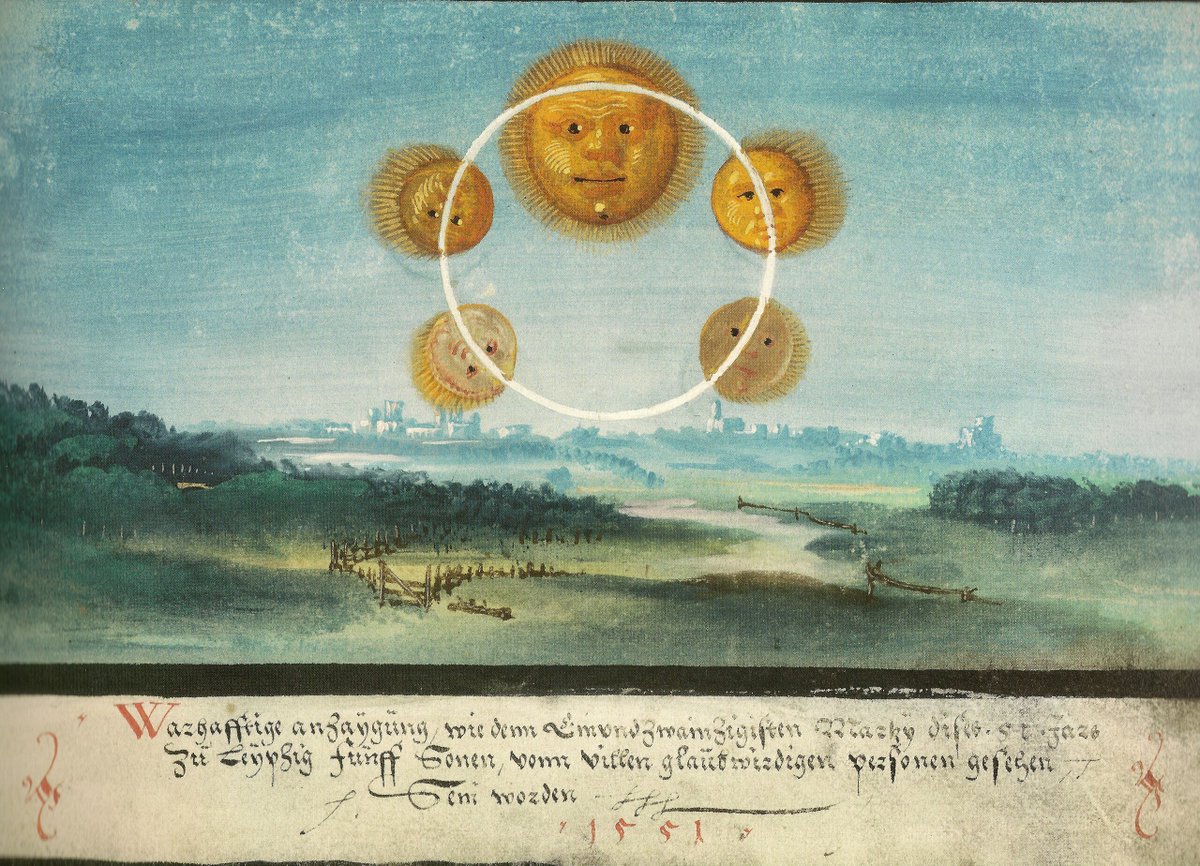 Warhafftige anzaÿgüng, wie dem Einvndzwainzigisten Martzÿ dises · 51 · Jars
Zü Leÿpzig fünff Sonen, vonn villen glaübwirdigen personen gesehen
Sein worden
1551